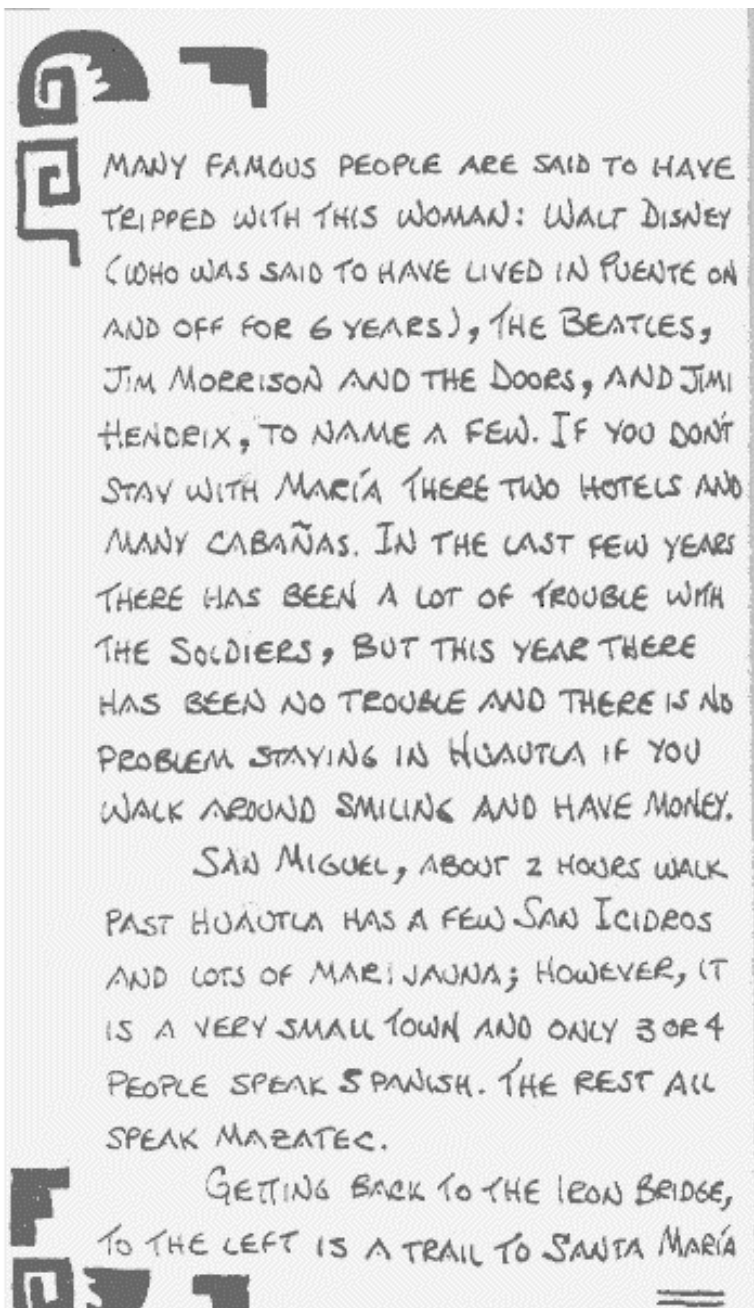 MANY FAMOUS PEOPLE ARE SAID TO HAVE
TRIPPED WITH THIS WOMAN: WALT DISNEY
(WHO WAS SAID TO HAVE LIVED IN PUENTE ON
AND OFF FOR 6 YEARS), THE BEATLES,
JIM MORRISON AND THE DOORS, AND JIMI
HENDRIX, TO NAME A FEW. IF YOU DON'T
STAY WITH MARÍA THERE TWO HOTELS AND
MANY CABAÑAS. IN THE LAST FEW YEARS
THERE HAS BEEN A LOT OF TROUBLE WITH
THE SOLDIERS, BUT THIS YEAR THERE
HAS BEEN NO TROUBLE AND THERE IS NO
PROBLEM STAYING IN HUAUTLA IF YOU
WALK AROUND SMILING AND HAVE MONEY.
SAN MIGUEL, ABOUT 2 HOURS WALK
PAST HUAUTLA HAS A FEW SAN ICIDROS
AND LOTS OF MARIJAUNA; HOWEVER, IT
IS A VERY SMALL TOWN AND ONLY 3 OR 4
PEOPLE SPEAK SPANISH. THE REST ALL
SPEAK MAZATEC.
GETTING BACK TO THE IRON BRIDGE,
TO THE LEFT IS A TRAIL TO SANTA MARÍA